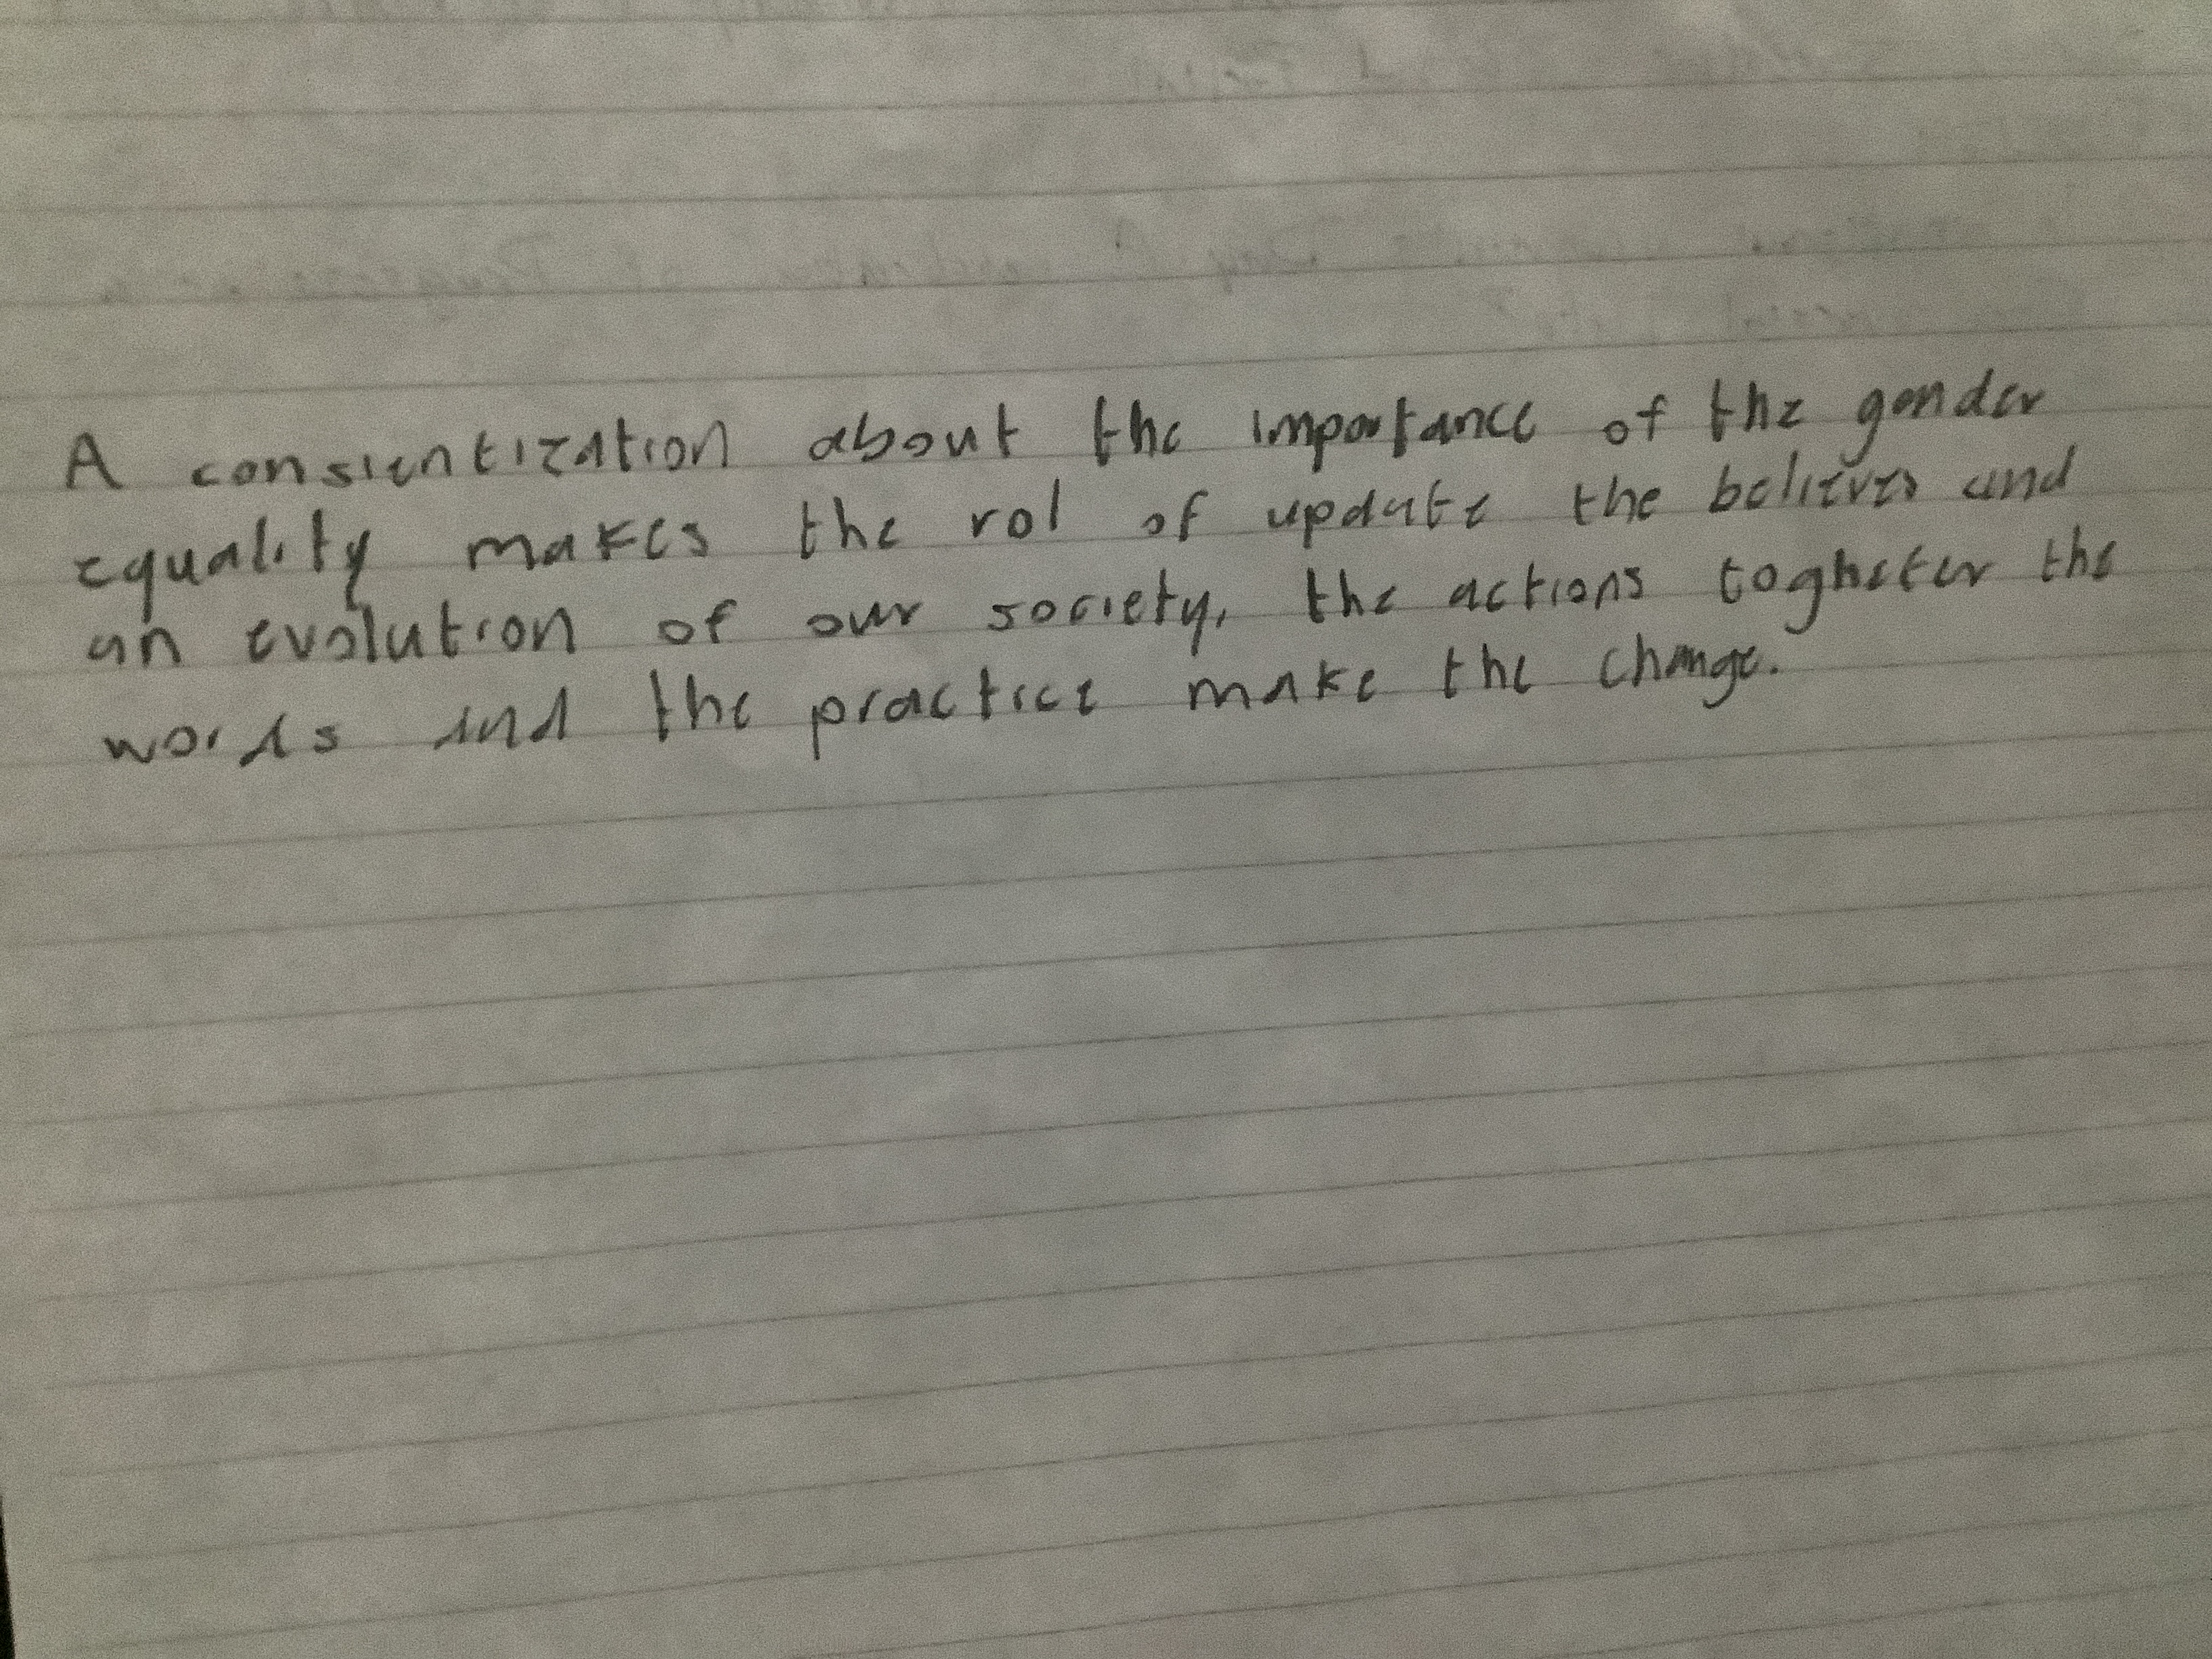 A consientization about the importance of the gender
equality makes the rol of update the believes and
an evolution of our society, the actions togheter the
words and the practice make the change.